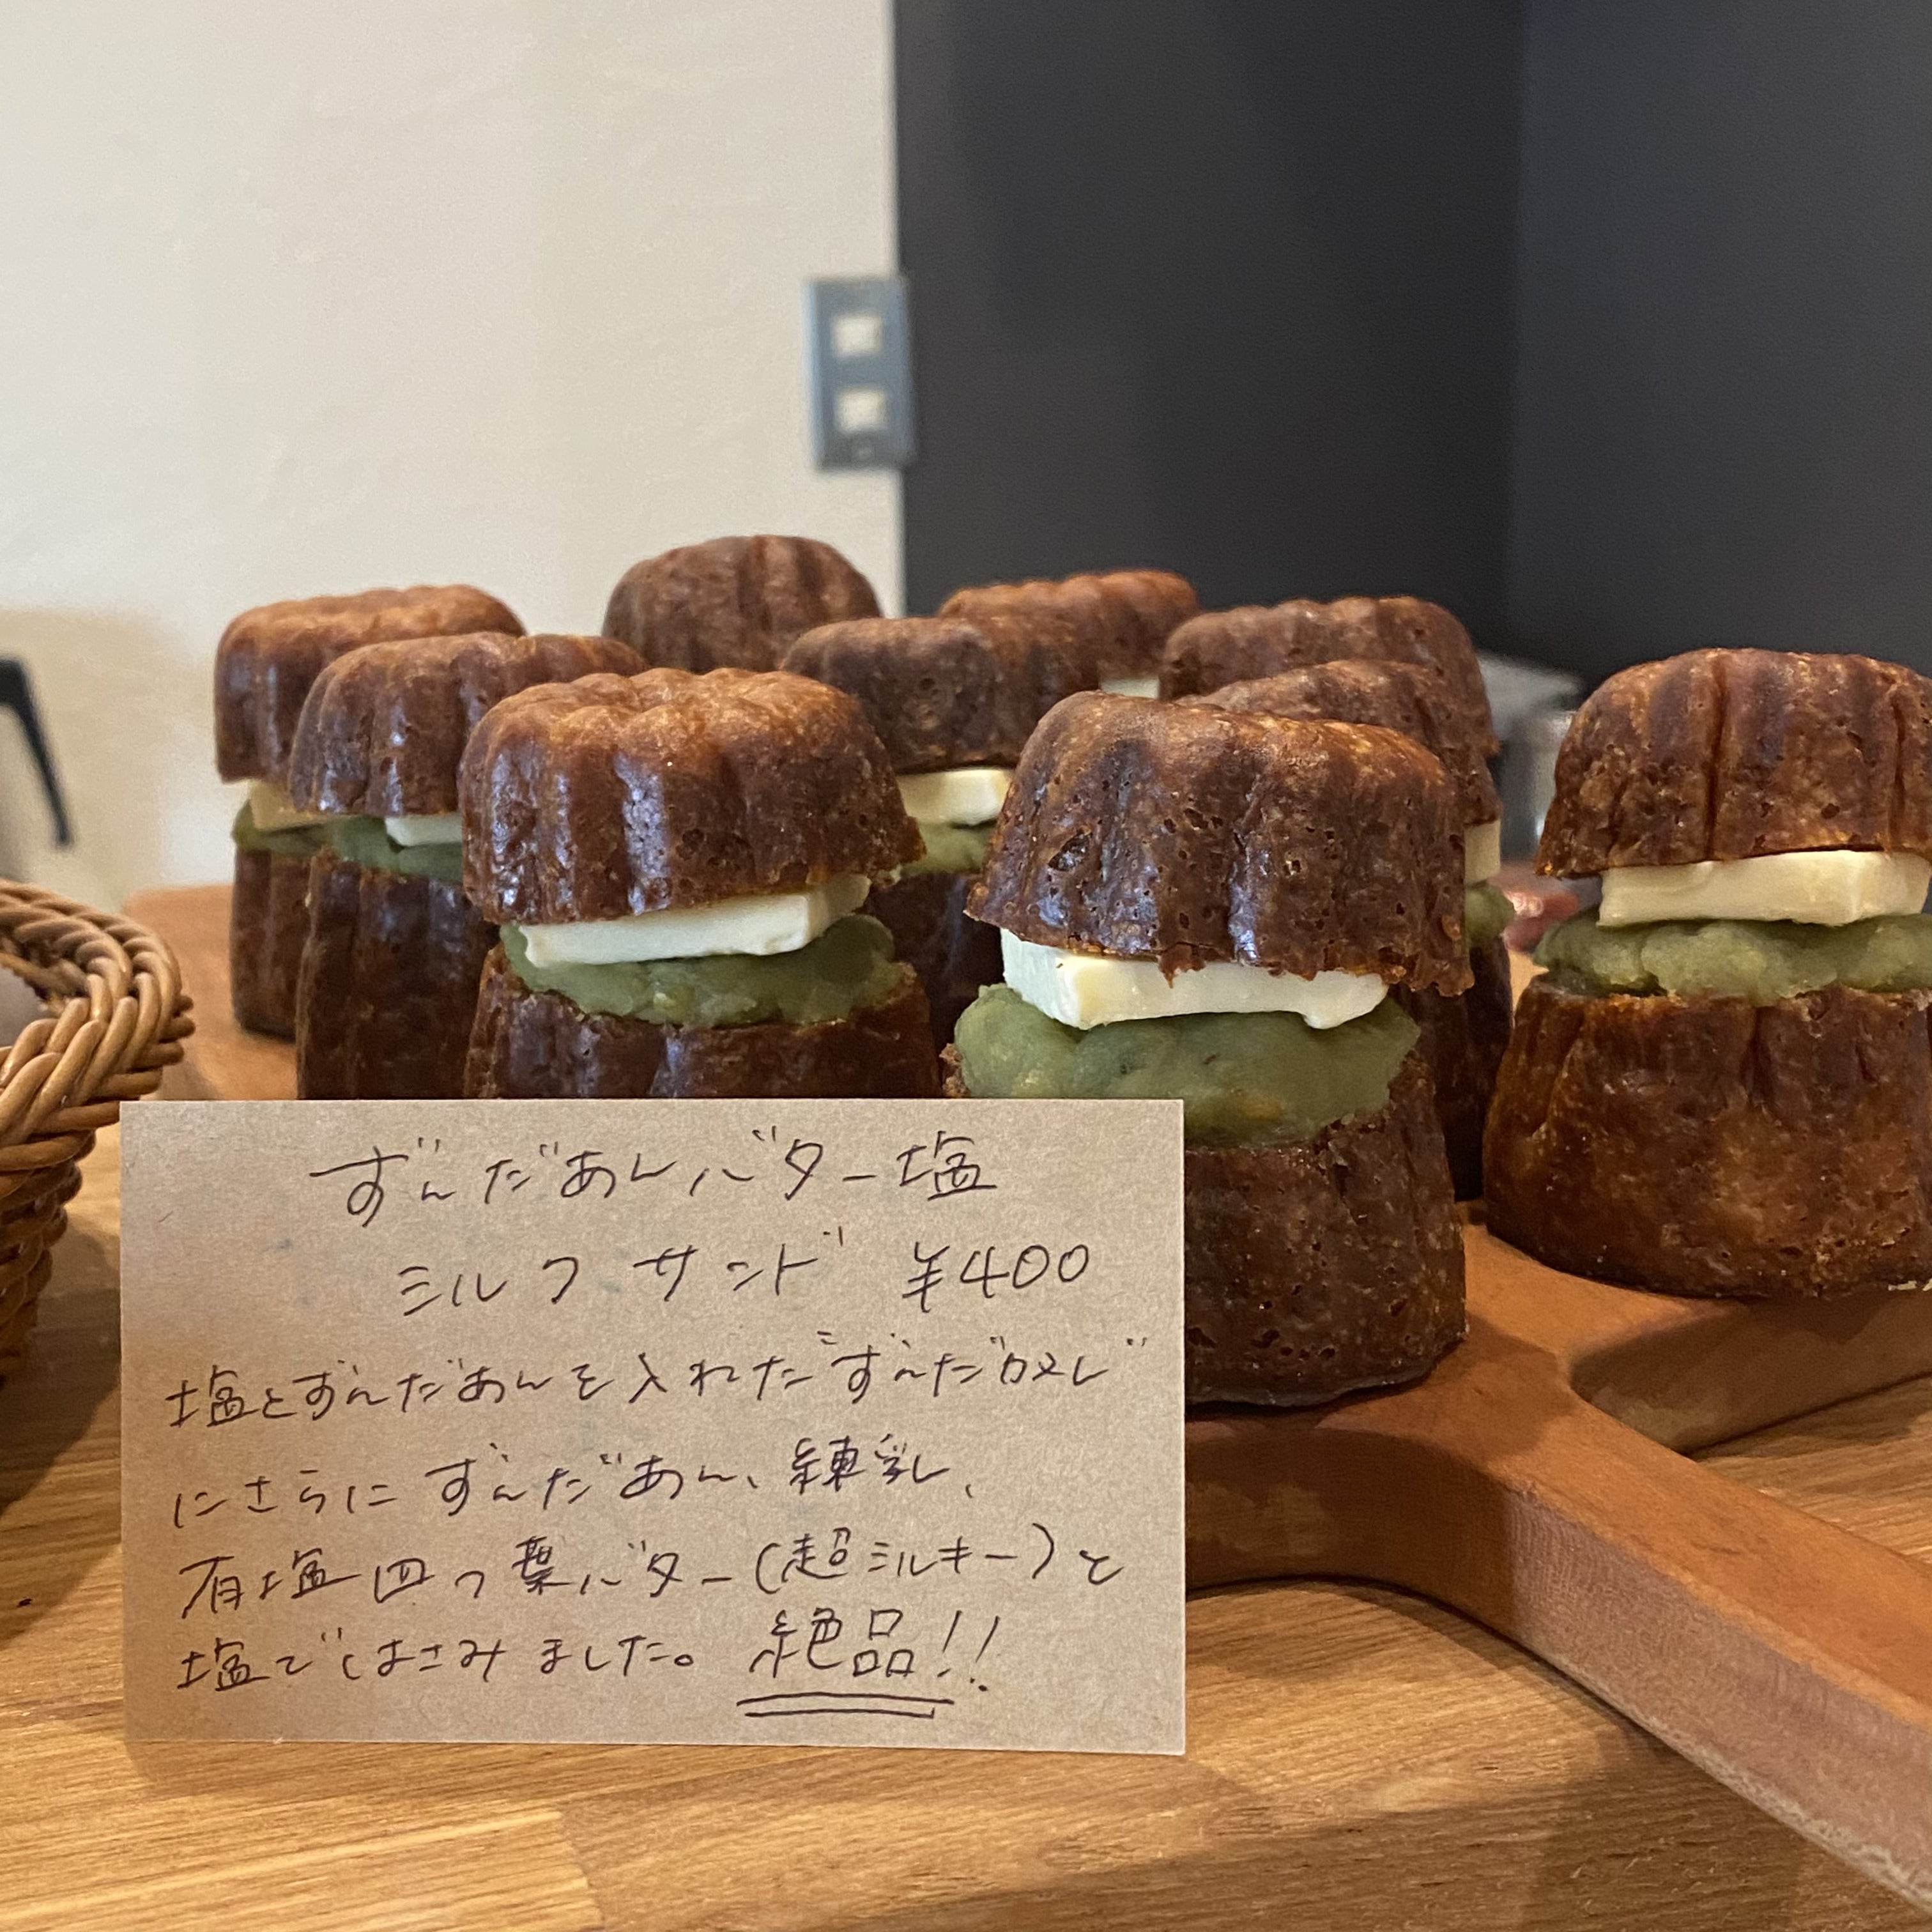 ずんだあんバター塩
ミルクサンド ¥400
塩とずんだあんを入れた"ずんだカヌレ"
にさらにずんだあん、練乳、
有塩四つ葉バター(超ミルキー)と
塩ではさみました。 絶品!!